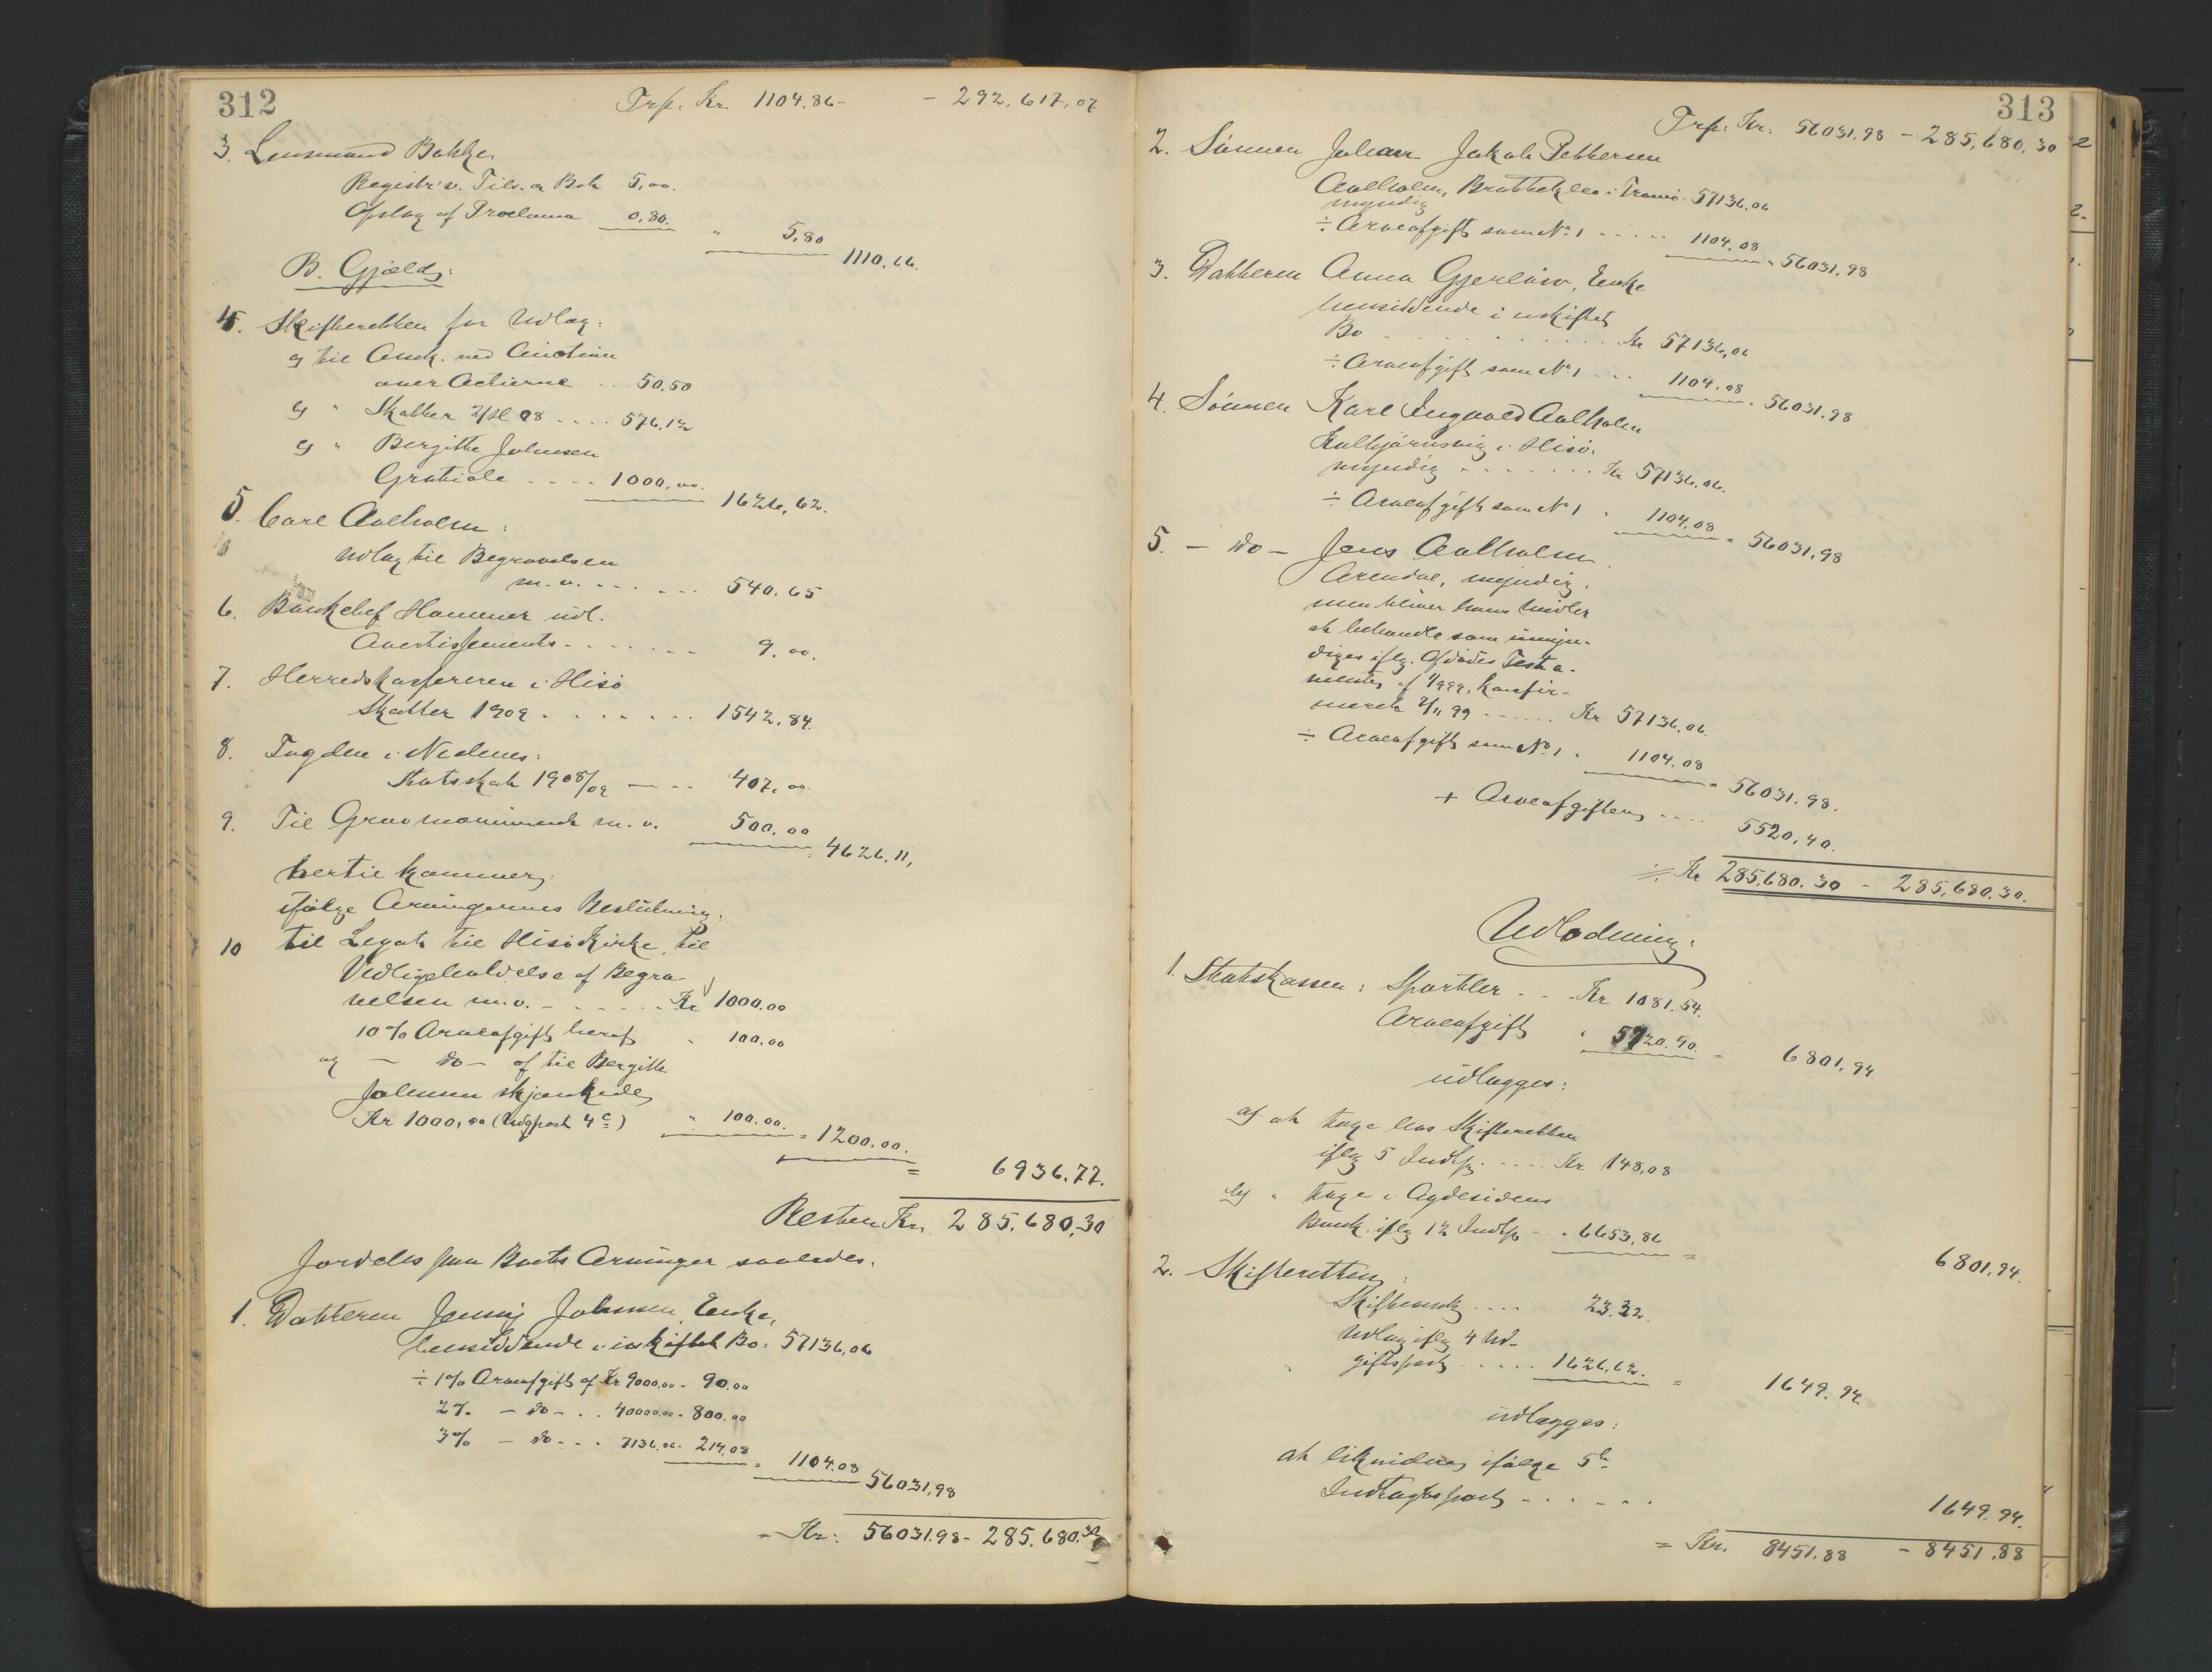 312
Trp. Kr. 1104.86 - - 292,617,07
3. Lensmand Bakke
Registr. v. Tils. a Bok 5,00.
Opslag af Proclama 0,80. " 5,80 1110,66.
B. Gjæld:
4. Skifteretten for Udlæg:
a) til Auk. ved Auction
over Actierne .. 50,50
b) " Skatter 2/hl 08 .... 576,12
c) " Bergitte Johnsen
Gratiale .... 1000,00. 1626,62.
5. Carl Aalholm:
Udlæg til Begravelsen
m. v. ...... 540.65
6. Bankchef Hammer udl.
Avertissements ....... 9.00.
7. Herredskasserern i Hisö
Skatter 1909 ....... 1542,84.
8. Fogden i Nedenes:
Statsskat 1908/09 — .. 407,00.
9. Til Gravmonument m. v. 500,00 4626,11,
hertil kommer:
ifölge Arvingernes Beslutning:
10 til Legat til Hisö Kirke til
Vedligeholdelse af Begra-
velsen m.v. ...... Kr 1000,00
10% Arveafgift heraf " 100.00
og — do — af til Bergitte
Johnsen skjænkede
Kr 1000,00 (Udgpost 4 c) " 100.00. = 1200.00.
= 6936.77.
Resten Kr. 285.680,30
fordeles paa Boets Arvinger saaledes:
1. Datteren Jenny Johnsen, Enke,
hensiddende i uskiftet Bo: 57136,06
÷ 1% Arveafgift af Kr 9000,00 - 90.00
2% — do — .. 40000,00 - 800.00
3% — do - .. 7136,06. 214.08 = 1104.08 56031,98
= Kr: 56031.98 - 285.680.30
313
Trp: Kr: 56031.98 - 285,680,30
2. Sönnen Johan Jakob Pettersen
Aalholm, Bratteklev i Tromö, 57136,06
myndig
÷ Arveafgift som No 1 ..... 1104.08 " 56031,98
3. Datteren Anna Gjerlöw, Enke
hensiddende i uskiftet
Bo ............ Kr 57136,06
÷ Arveafgift som No 1 ... 1104.08 . 56031,98
4. Sönnen Karl Ingvald Aalholm
Kolbjörnsvig i Hisö.
myndig ........ Kr 57136,06.
÷ Arveafgift som No 1 . 1104.08 = 56031,98
5. — do — Jens Aalholm
Arendal, myndig,
men bliver hans Midler
at behandle som umyn-
diges iflg. Afdödes Testa-
mente af, konfir-
meret 2/11 99 ...... Kr 57136,06.
÷ Arveafgift som No 1 . 1104.08 = 56031,98.
+ Arveafgiften .... 5520,40.
= Kr 285,680.30 - 285,680,30.
Udlodning:
1. Statskassen: Sportler .. Kr 1081,54.
Arveafgift " 5720.40. = 6801,94.
udlægges:
a) at tage hos Skifteretten
iflg 5 Indtp. .... Kr 148,08
b) " tage i Agdesidens
Bank. iflg 12 Indtp - . 6653,86 = 6801,94.
2. Skifteretten:
Skiftesmk .... 23.32.
Udlæg iflg 4 Ud-
giftspost ..... 1626,62. = 1649.94
udlægges:
at likvidere ifölge 5te
Indtægtspost ...... 1649.94.
= Kr. 8451.88 - 8451.88